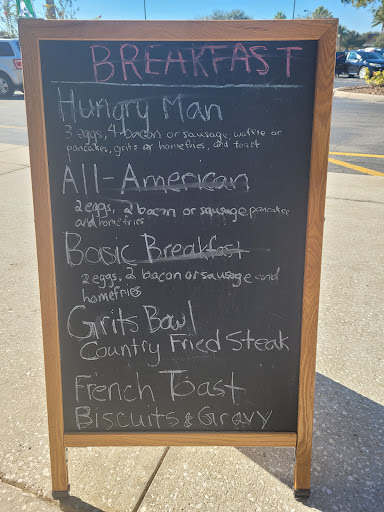 BREAKFAST
Hungry Man
3 eggs, 4 bacon or sausage, waffle or
pancakes, grits or homefries, and toast
All-American
2 eggs, 2 bacon or sausage, pancakes
and homefries
Basic Breakfast
2 eggs, 2 bacon or sausage and
homefries
Grits Bowl
Country Fried Steak
French Toast
Biscuits & Gravy